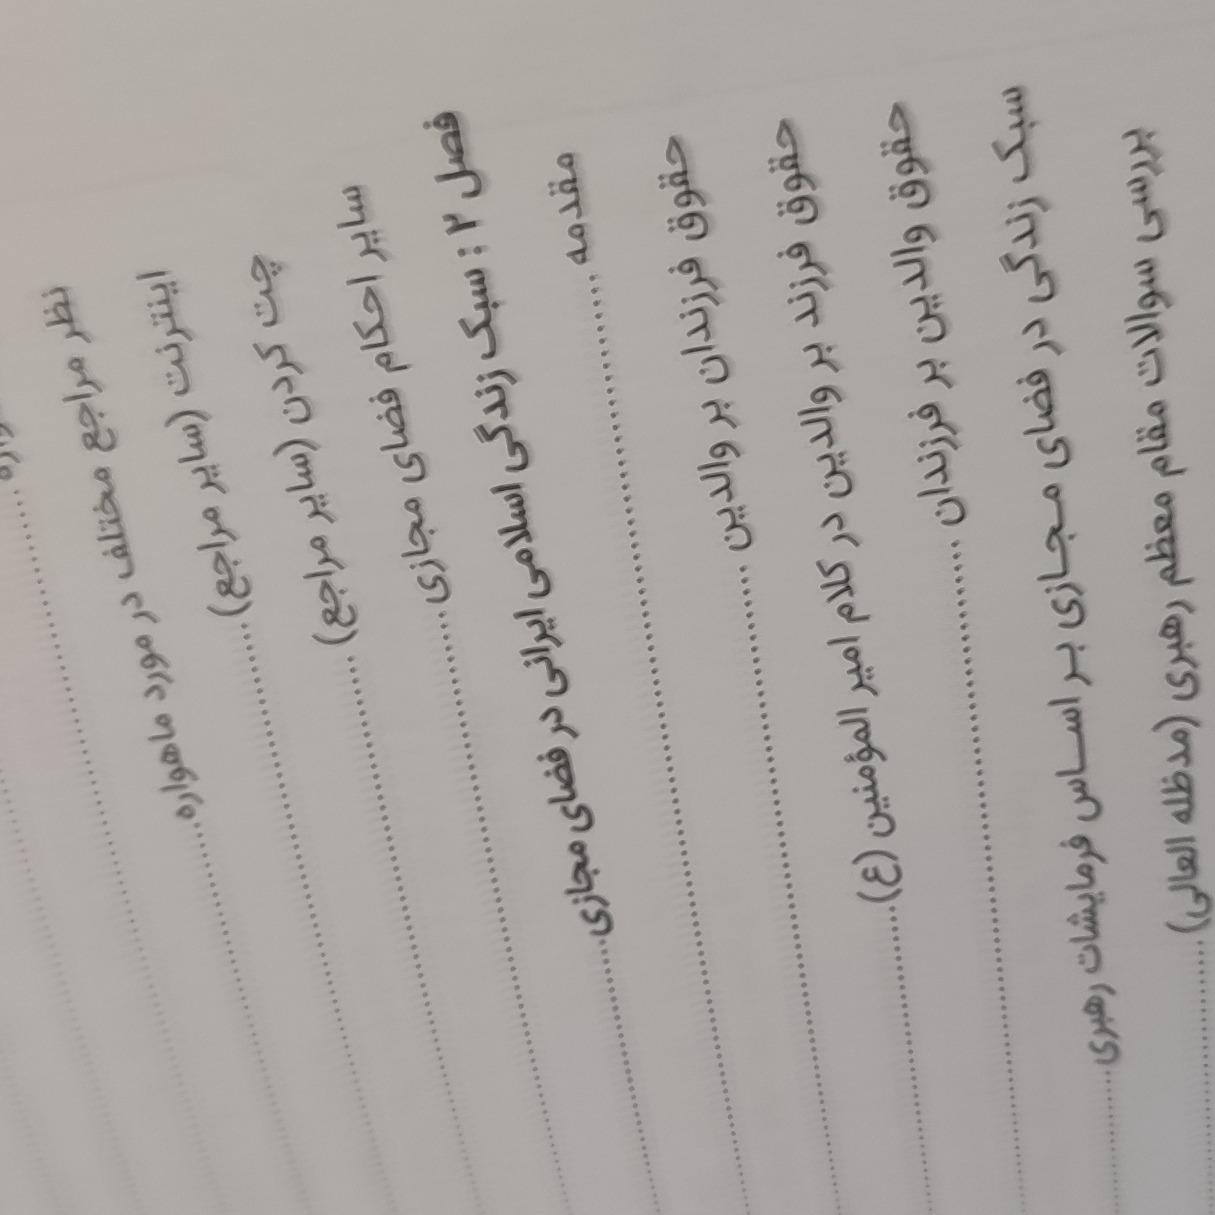 نظر مراجع مختلف در مورد ماهواره
اینترنت (سایر مراجع)
چت کردن (سایر مراجع)
سایر احکام فضای مجازی
فصل ۲: سبک زندگی اسلامی ایرانی در فضای مجازی
مقدمه
حقوق فرزندان بر والدین
حقوق فرزند بر والدین در کلام امیرالمؤمنین (ع)
حقوق والدین بر فرزندان
سبک زندگی در فضای مجازی بر اساس فرمایشات رهبری
بررسی سؤالات مقام معظم رهبری (مدظله العالی)